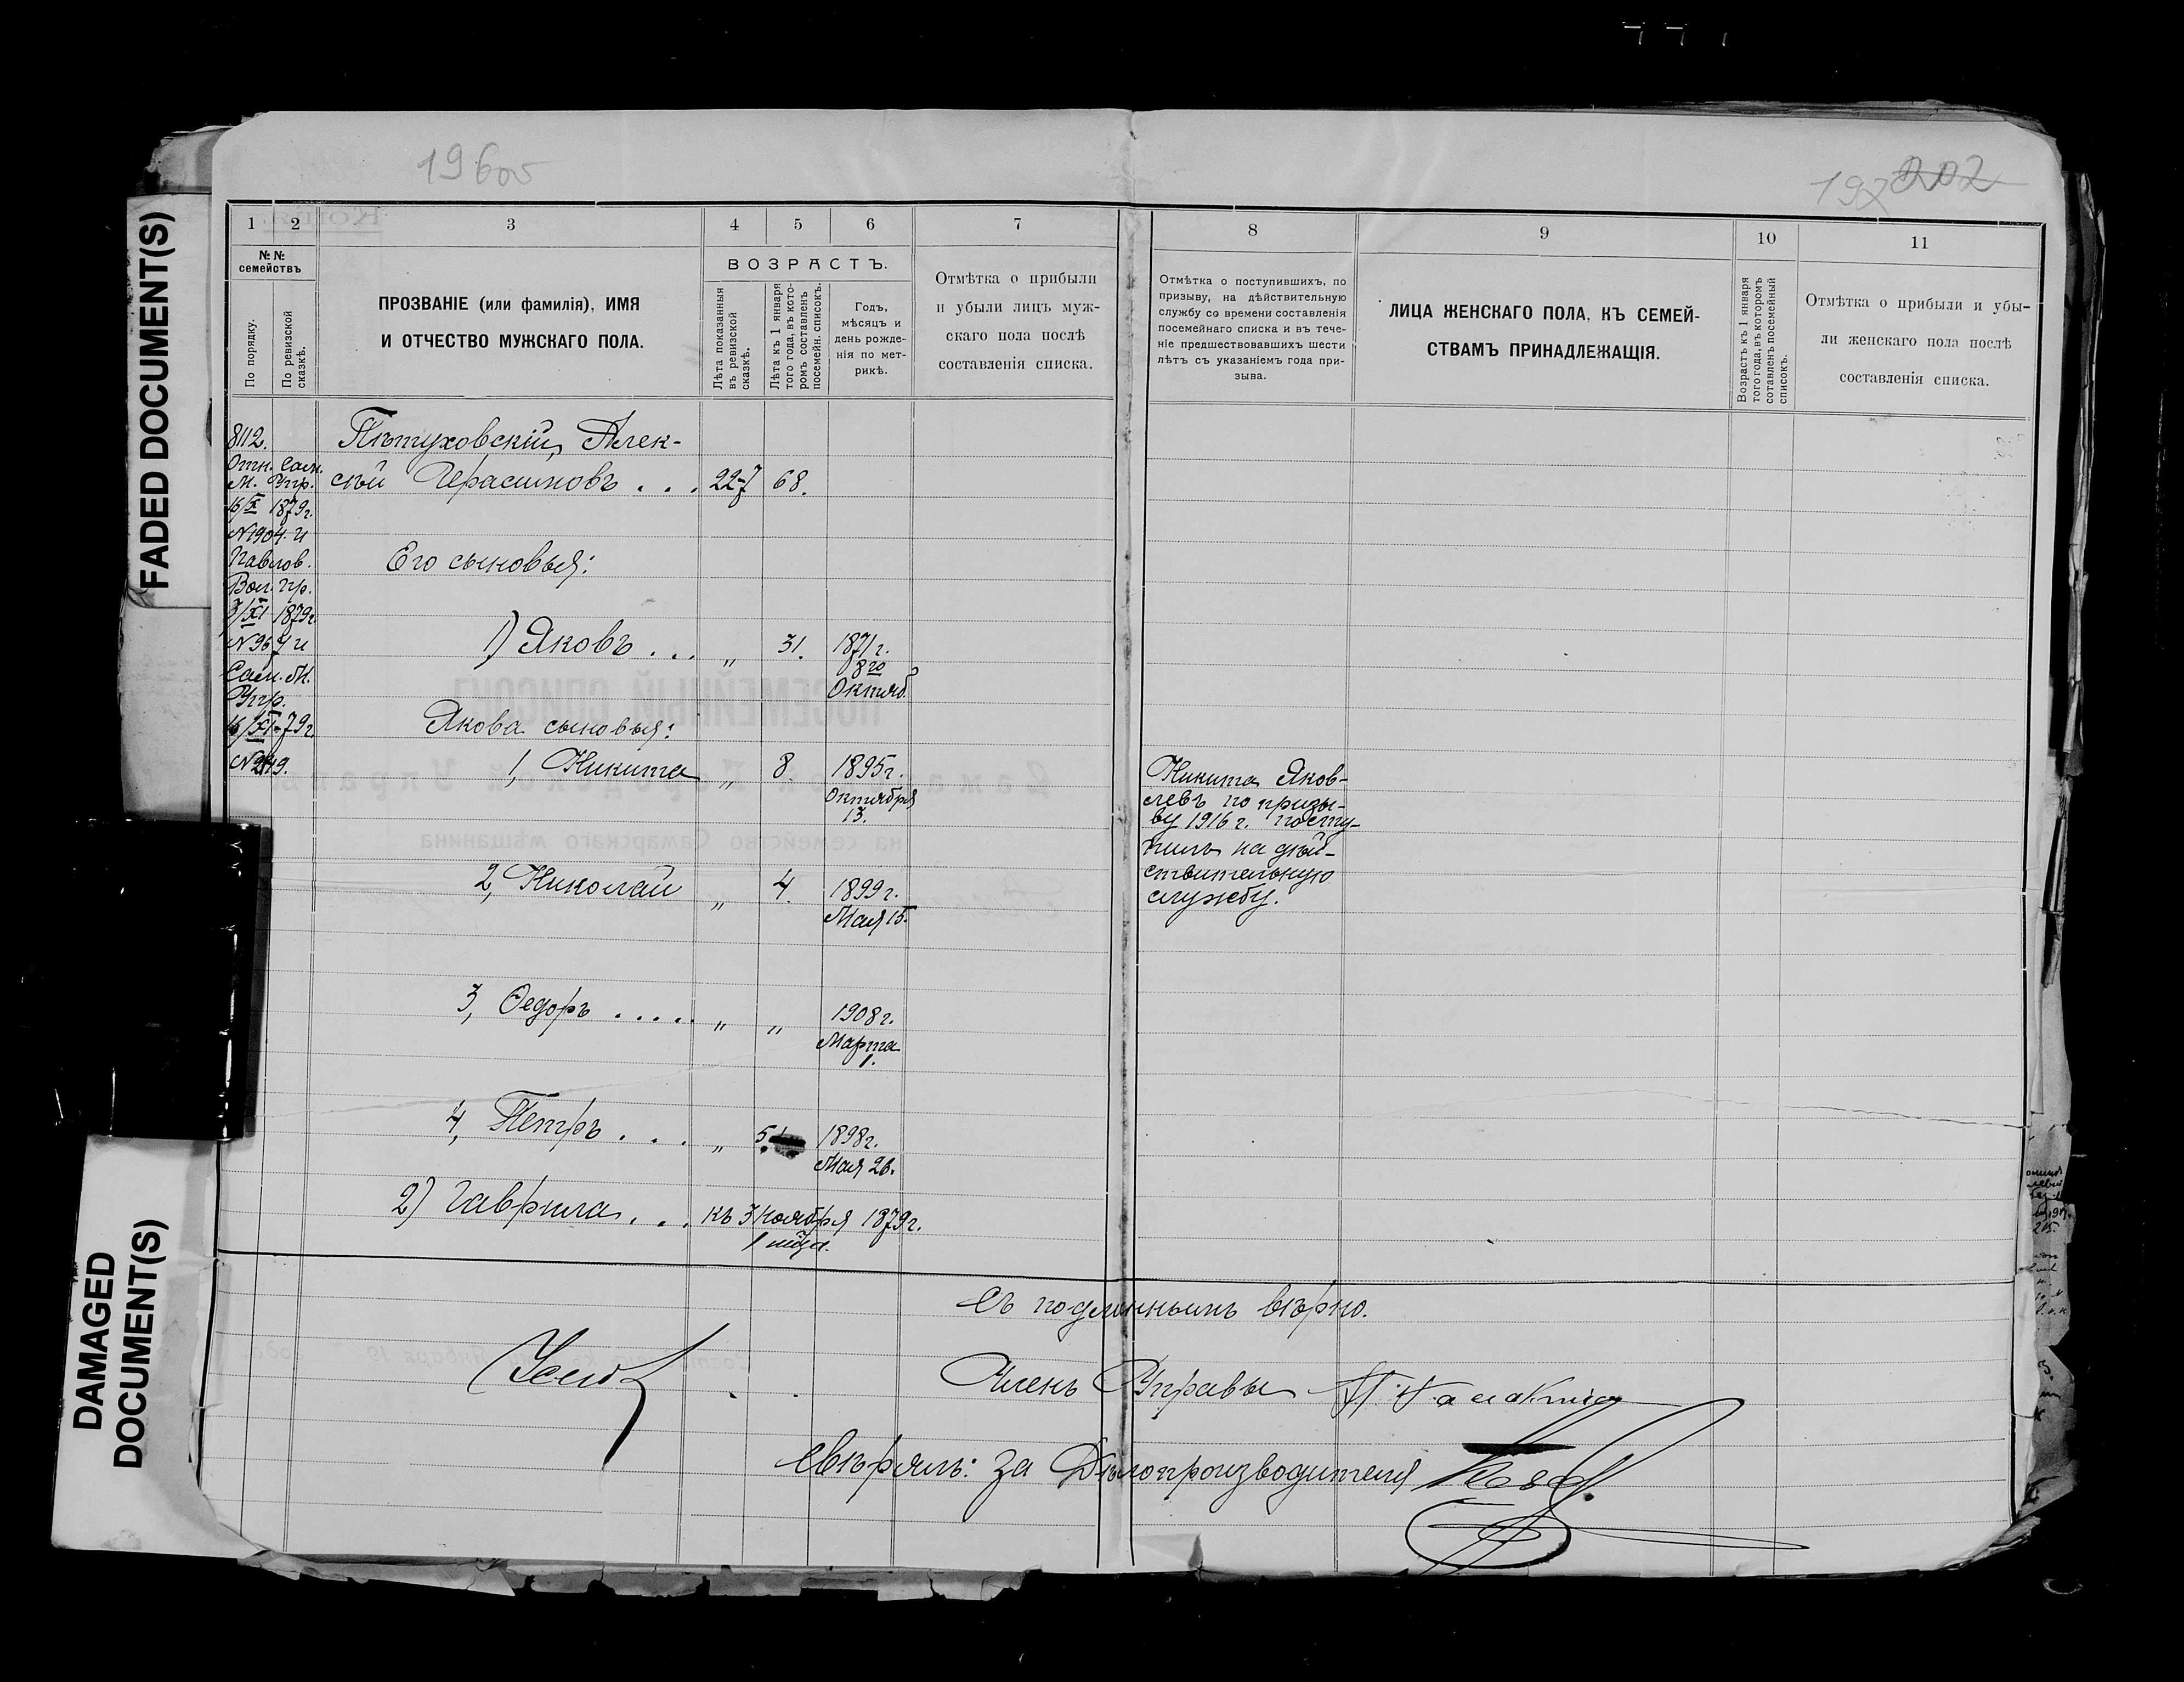 196об
197 202
FADED DOCUMENT(S)
DAMAGED
DOCUMENT(S)
1 2 3 4 5 6 7 8 9 10 11
№№
семействъ
По порядку.
По ревизской
сказкѣ.
ПРОЗВАНІЕ (или фамилія), ИМЯ
И ОТЧЕСТВО МУЖСКАГО ПОЛА.
ВОЗРАСТЪ.
Лѣта показанныя
въ ревизской
сказкѣ.
Лѣта къ 1 января
того года, въ кото-
ромъ составленъ
посемейн. списокъ.
Годъ,
мѣсяцъ и
день рожде-
нія по мет-
рикѣ.
Отмѣтка о прибыли
и убыли лицъ муж-
скаго пола послѣ
составленія списка.
Отмѣтка о поступившихъ, по
призыву, на дѣйствительную
службу со времени составленія
посемейнаго списка и въ тече-
ніе предшествовавшихъ шести
лѣтъ съ указаніемъ года при-
зыва.
ЛИЦА ЖЕНСКАГО ПОЛА, КЪ СЕМЕЙ-
СТВАМЪ ПРИНАДЛЕЖАЩІЯ.
Возрастъ къ 1 января
того года, въ которомъ
составленъ посемейный
списокъ.
Отмѣтка о прибыли и убы-
ли женскаго пола послѣ
составленія списка.
8112.
Отн. Сам.
М. Упр.
16/X 1879г.
N1904 и
Павлов.
Вол. пр.
3/XI 1879г.
N967 и
Сам. М.
Упр.
16/XI-79г.
Пѣтуховскій, Алек-
сѣй Герасимовъ . . . 68.
Его сыновья:
1) Яковъ . . . „ 31. 1871г.
8го
Октяб.
Якова сыновья:
1, Никита „ 8 1895г.
Октября
13.
2, Николай „ 4. 1899г.
Мая 15.
3, Ѳедоръ . . . . . „ „ 1908г.
Марта
1.
4, Петръ . . . „ 5 1898г.
Мая 26.
2) Гаврила . . . къ 3 Ноября 1879г.
1 мѣс.
Никита Яков-
левъ по призы-
ву 1916г. посту-
пилъ на дѣй-
ствительную
службу.
Съ подлиннымъ вѣрно.
Членъ Управы
Свѣрялъ: за Дѣлопроизводителя